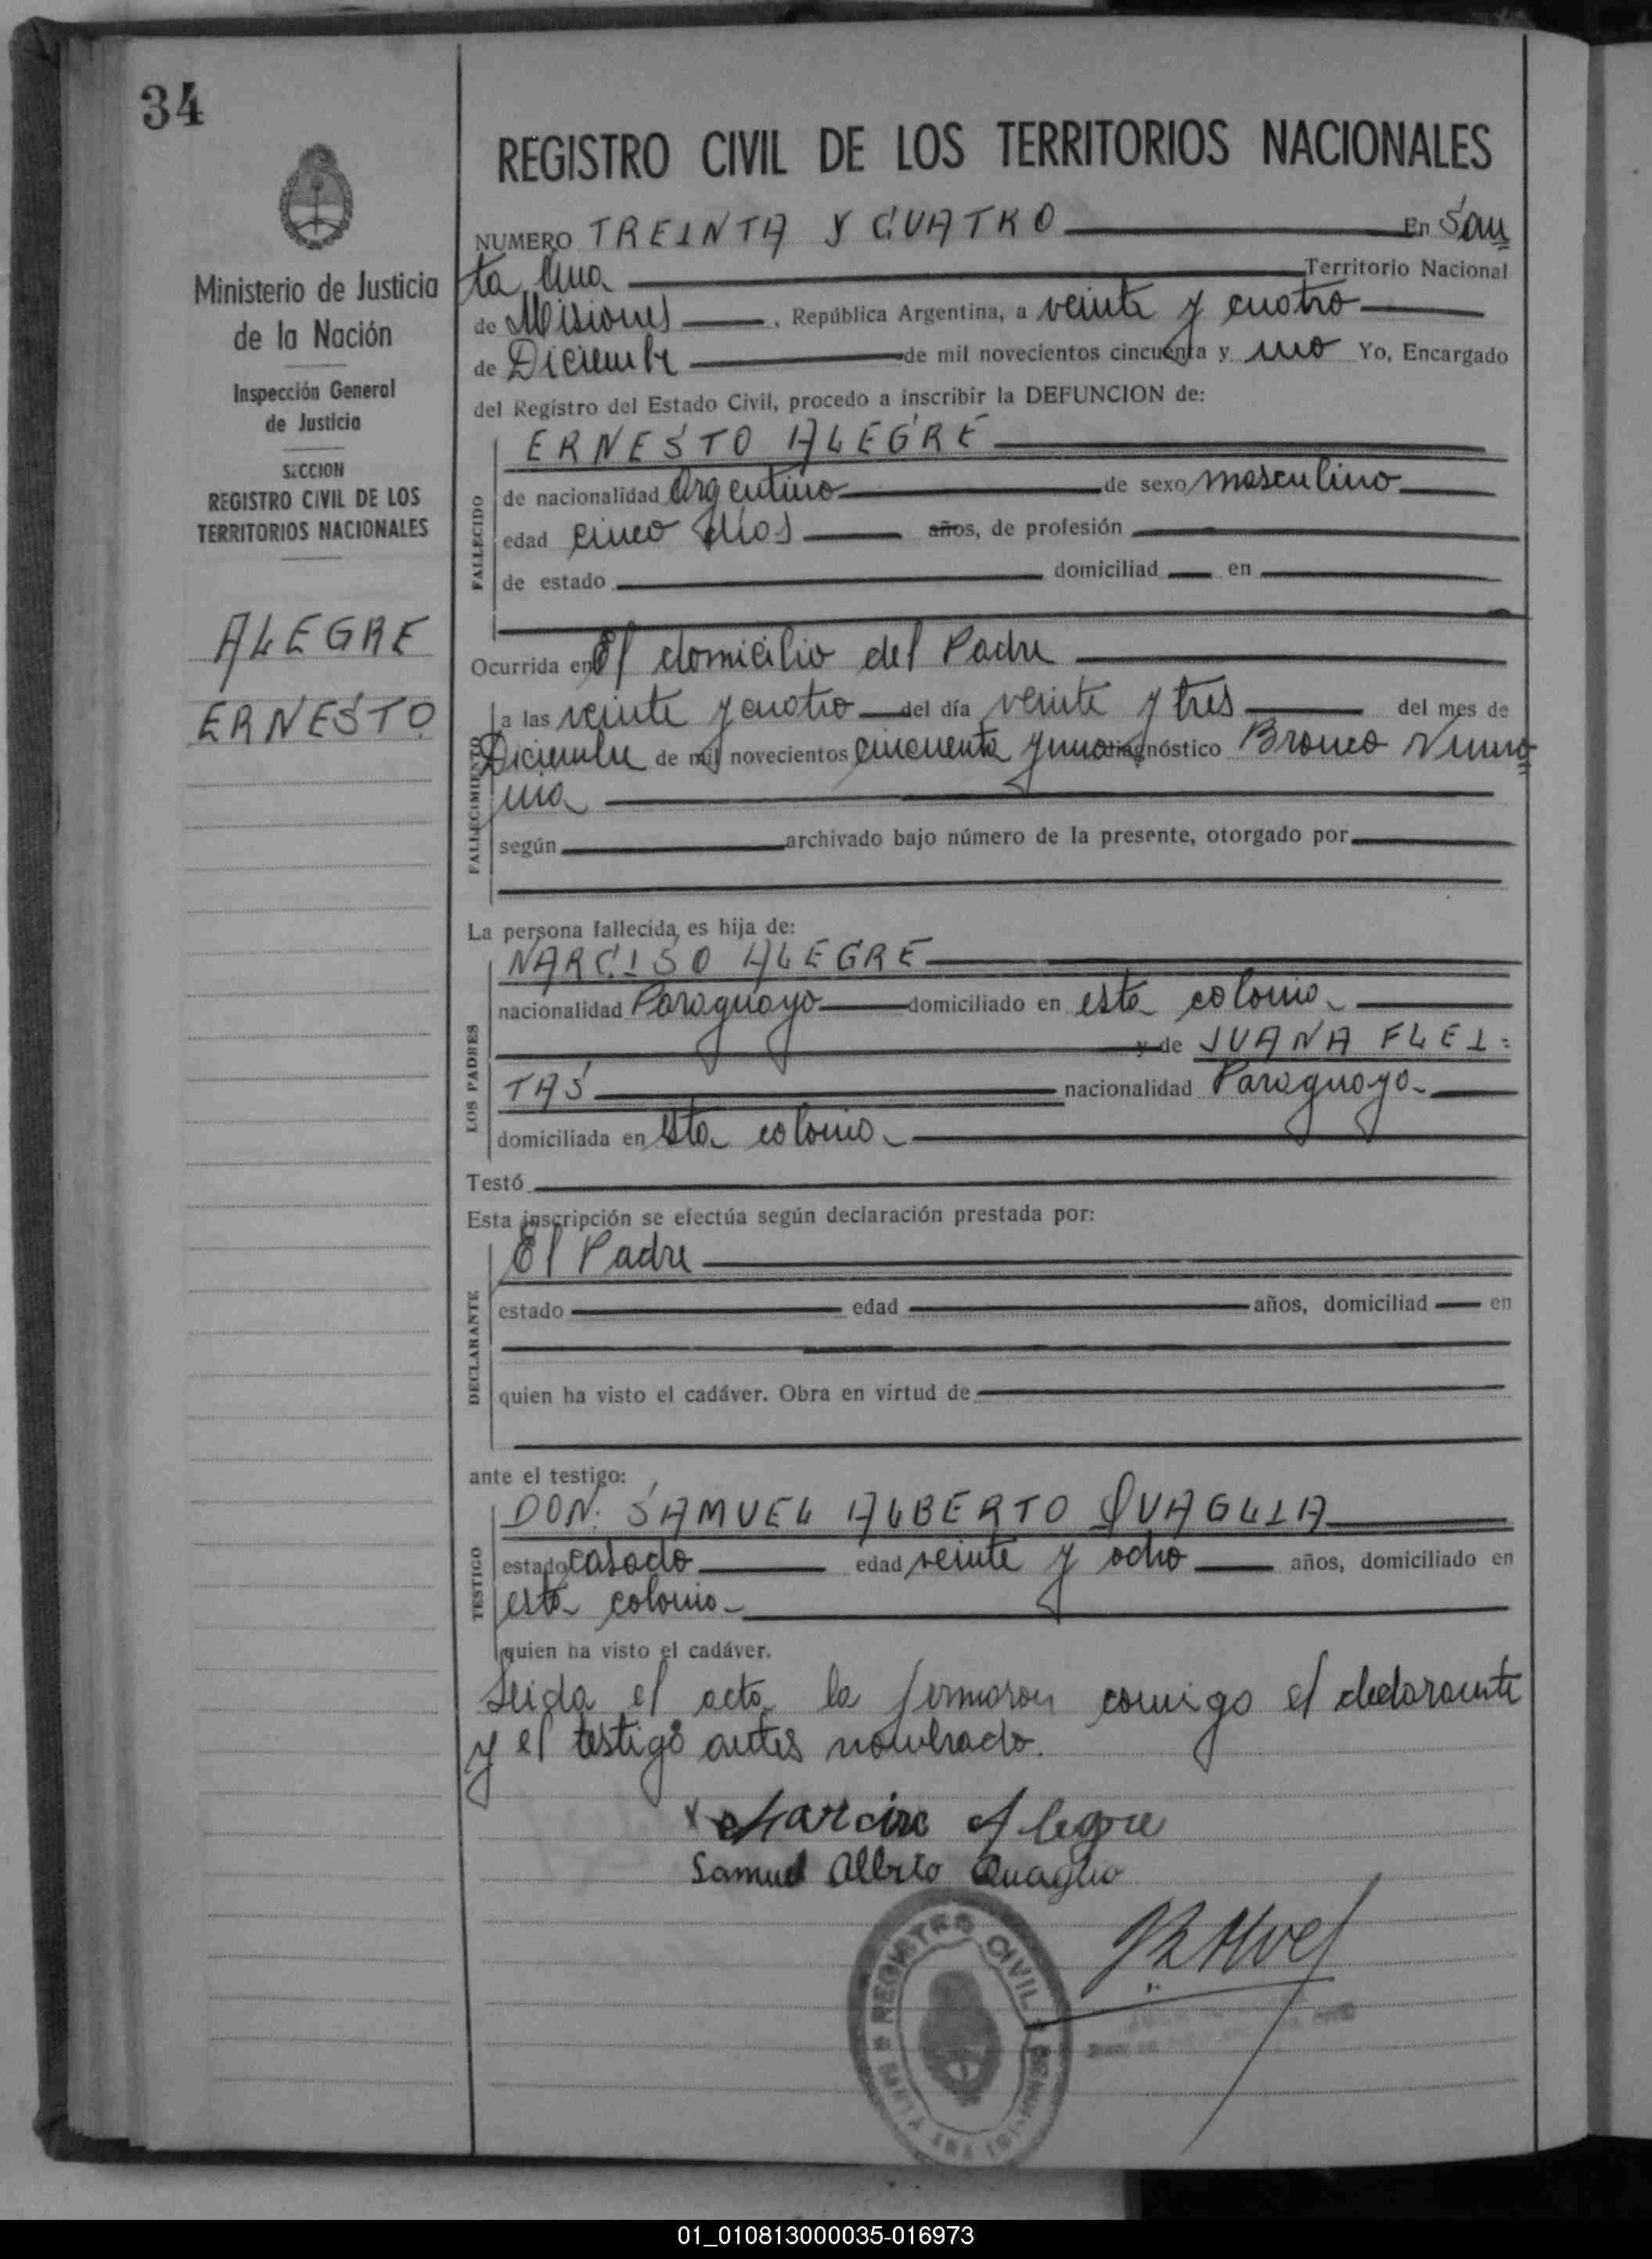 34
Ministerio de Justicia
de la Nación
Inspección General
de Justicia
SECCION
REGISTRO CIVIL DE LOS
TERRITORIOS NACIONALES
ALEGRE
ERNESTO
REGISTRO CIVIL DE LOS TERRITORIOS NACIONALES
NUMERO TREINTA Y CUATRO En San
ta Ana Territorio Nacional
de Misiones, República Argentina, a veinte y cuatro
de Diciembre de mil novecientos cincuenta y uno Yo, Encargado
del Registro del Estado Civil, procedo a inscribir la DEFUNCION de:
FALLECIDO
ERNESTO ALEGRE
de nacionalidad Argentino de sexo masculino
edad cinco días años, de profesión
de estado domiciliad en
Ocurrida en El domicilio del Padre
FALLECIMIENTO
a las veinte y cuatro del día veinte y tres del mes de
Diciembre de mil novecientos cincuenta y uno diagnóstico Bronco Neumo
nia
según archivado bajo número de la presente, otorgado por
La persona fallecida, es hija de:
LOS PADRES
NARCISO ALEGRE
nacionalidad Paraguayo domiciliado en esta colonia
y de JUANA FLEI=
TAS nacionalidad Paraguaya
domiciliada en esta colonia
Testó
Esta inscripción se efectúa según declaración prestada por:
DECLARANTE
El Padre
estado edad años, domiciliad en
quien ha visto el cadáver. Obra en virtud de
ante el testigo:
TESTIGO
DON. SAMUEL ALBERTO QUAGLIA
estado casado edad veinte y ocho años, domiciliado en
esta colonia
quien ha visto el cadáver.
Leida el acta la firmaron comigo el declarante
y el testigo antes nombrado.
x Narciso Alegre
Samuel Alberto Quaglia
REGISTRO CIVIL
SANTA ANA
01_010813000035-016973